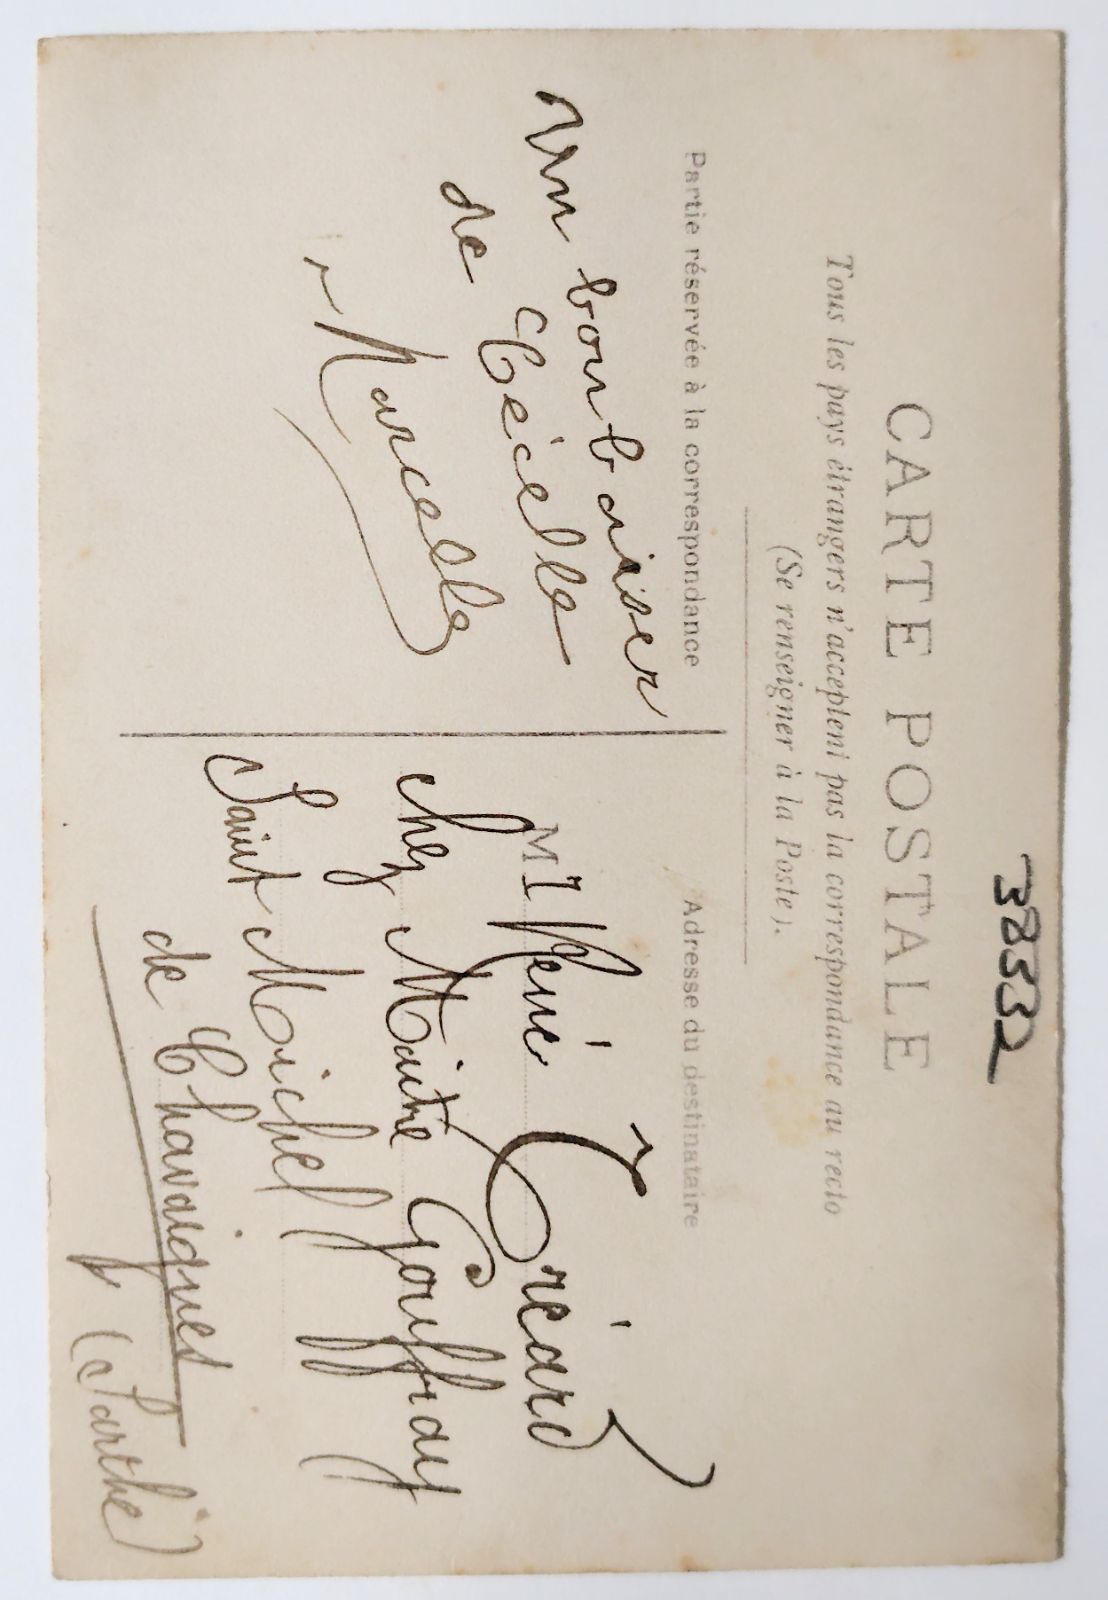 38332
CARTE POSTALE
Tous les pays étrangers n'acceptent pas la correspondance au recto
(Se renseigner à la Poste).
Partie réservée à la correspondance
Un bon baiser
de Cécille
Marcelle
Adresse du destinataire
Mr René Tréard
chez Maitre Gouffray
Saint Michel
de Chavaignes
(Sarthe)